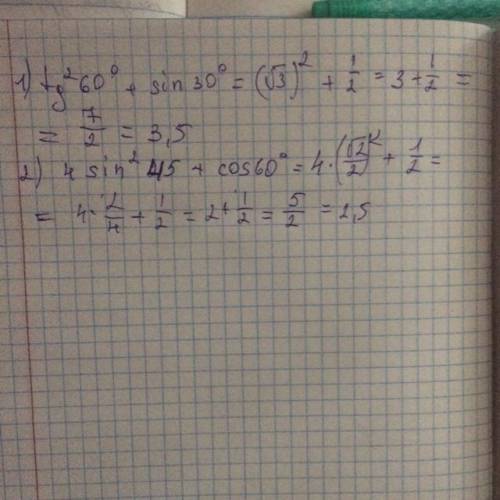 1) tg²60° + sin 30° = (√3)² + 1/2 = 3 + 1/2 =
= 7/2 = 3,5
2) 4 sin² 45 + cos60° = 4 · (√2/2)² + 1/2 =
= 4 · 2/4 + 1/2 = 2 + 1/2 = 5/2 = 2,5